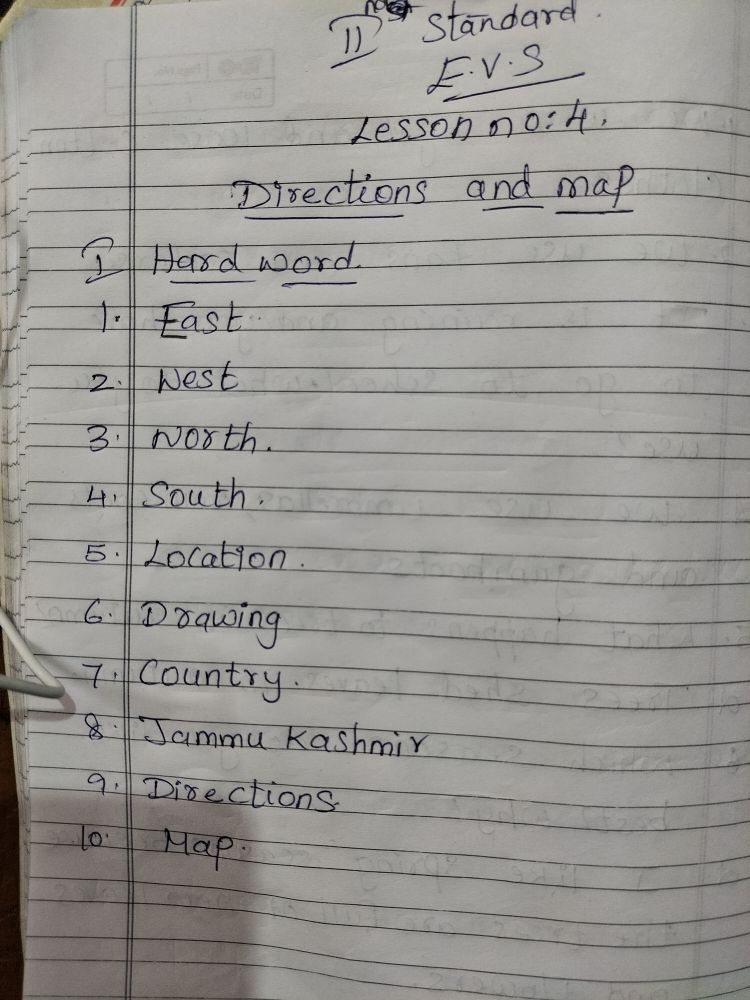 IInd Standard.
E.V.S
Lesson no: 4.
Directions and map
I Hard word.
1. East.
2. West
3. North.
4. South.
5. Location.
6. Drawing
7. Country.
8. Jammu Kashmir
9. Directions
10. Map.